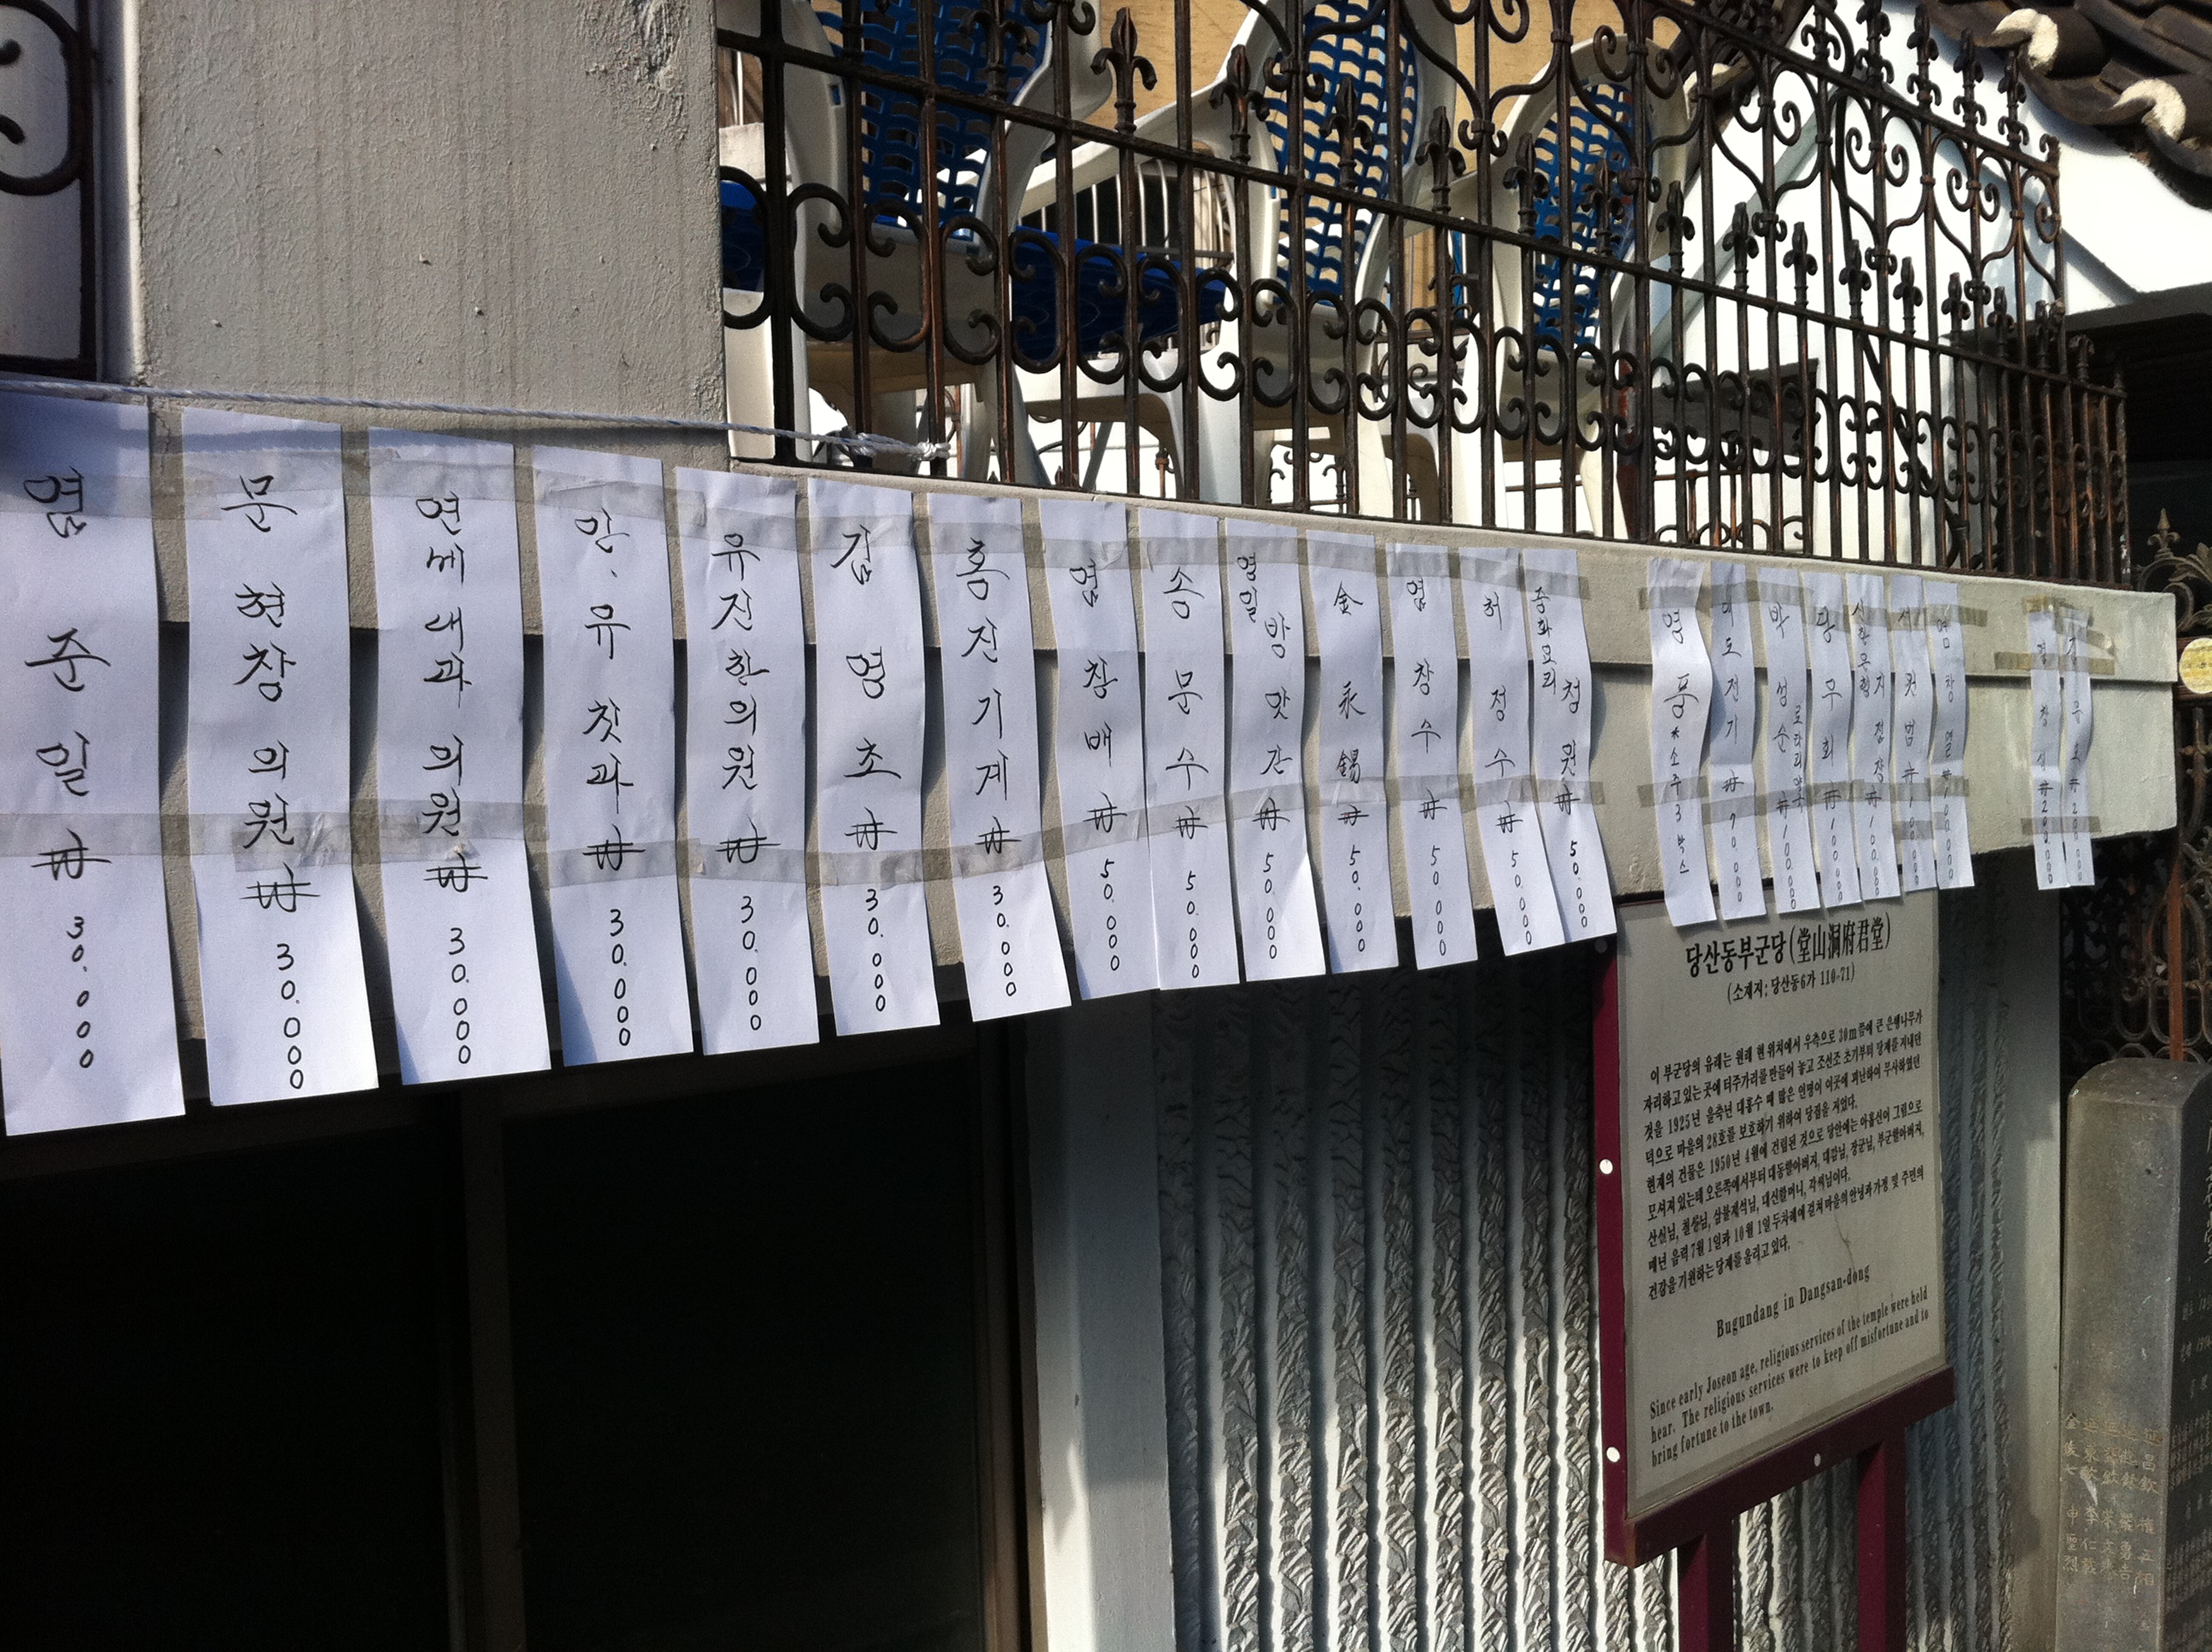 염준일 ₩30.000
문현창의원 ₩30.000
연세내과의원 ₩30.000
유 칫과 ₩30.000
유진한의원 ₩30.000
김영초 ₩30.000
홍진기계 ₩30.000
염창배 ₩50.000
송문수 ₩50.000
영일 방앗간 ₩50.000
金永錫 ₩50.000
염창수 ₩50.000
허정수 ₩50.000
중화요리 ₩50.000
영풍 소주3박스
전기 ₩70.000
박성순 로타리약국 ₩100.000
무회
염창열
당산동부군당(堂山洞府君堂)
(소재지; 당산동6가 110-71)
이 부군당의 유래는 원래 현 위치에서 우측으로 30m쯤에 큰 은행나무가
자리하고 있는 곳에 터주가리를 만들어 놓고 조선조 초기부터 당제를 지내던
것을 1925년 을축년 대홍수 때 많은 인명이 이곳에 피난하여 무사하였던
덕으로 마을의 28호를 보호하기 위하여 당집을 지었다.
현재의 건물은 1950년 4월에 건립된 것으로 당안에는 아홉신이 그림으로
모셔져 있는데 오른쪽에서부터 대동할아버지, 대감님, 장군님, 부군할아버지,
산신님, 칠성님, 삼불제석님, 대신할머니, 각씨님이다.
매년 음력 7월 1일과 10월 1일 두차례에 걸쳐 마을의 안녕과 가정 및 주민의
건강을 기원하는 당제를 올리고 있다.
Bugundang in Dangsan-dong
Since early Joseon age, religious services of the temple were held
hear. The religious services were to keep off misfortune and to
bring fortune to the town.